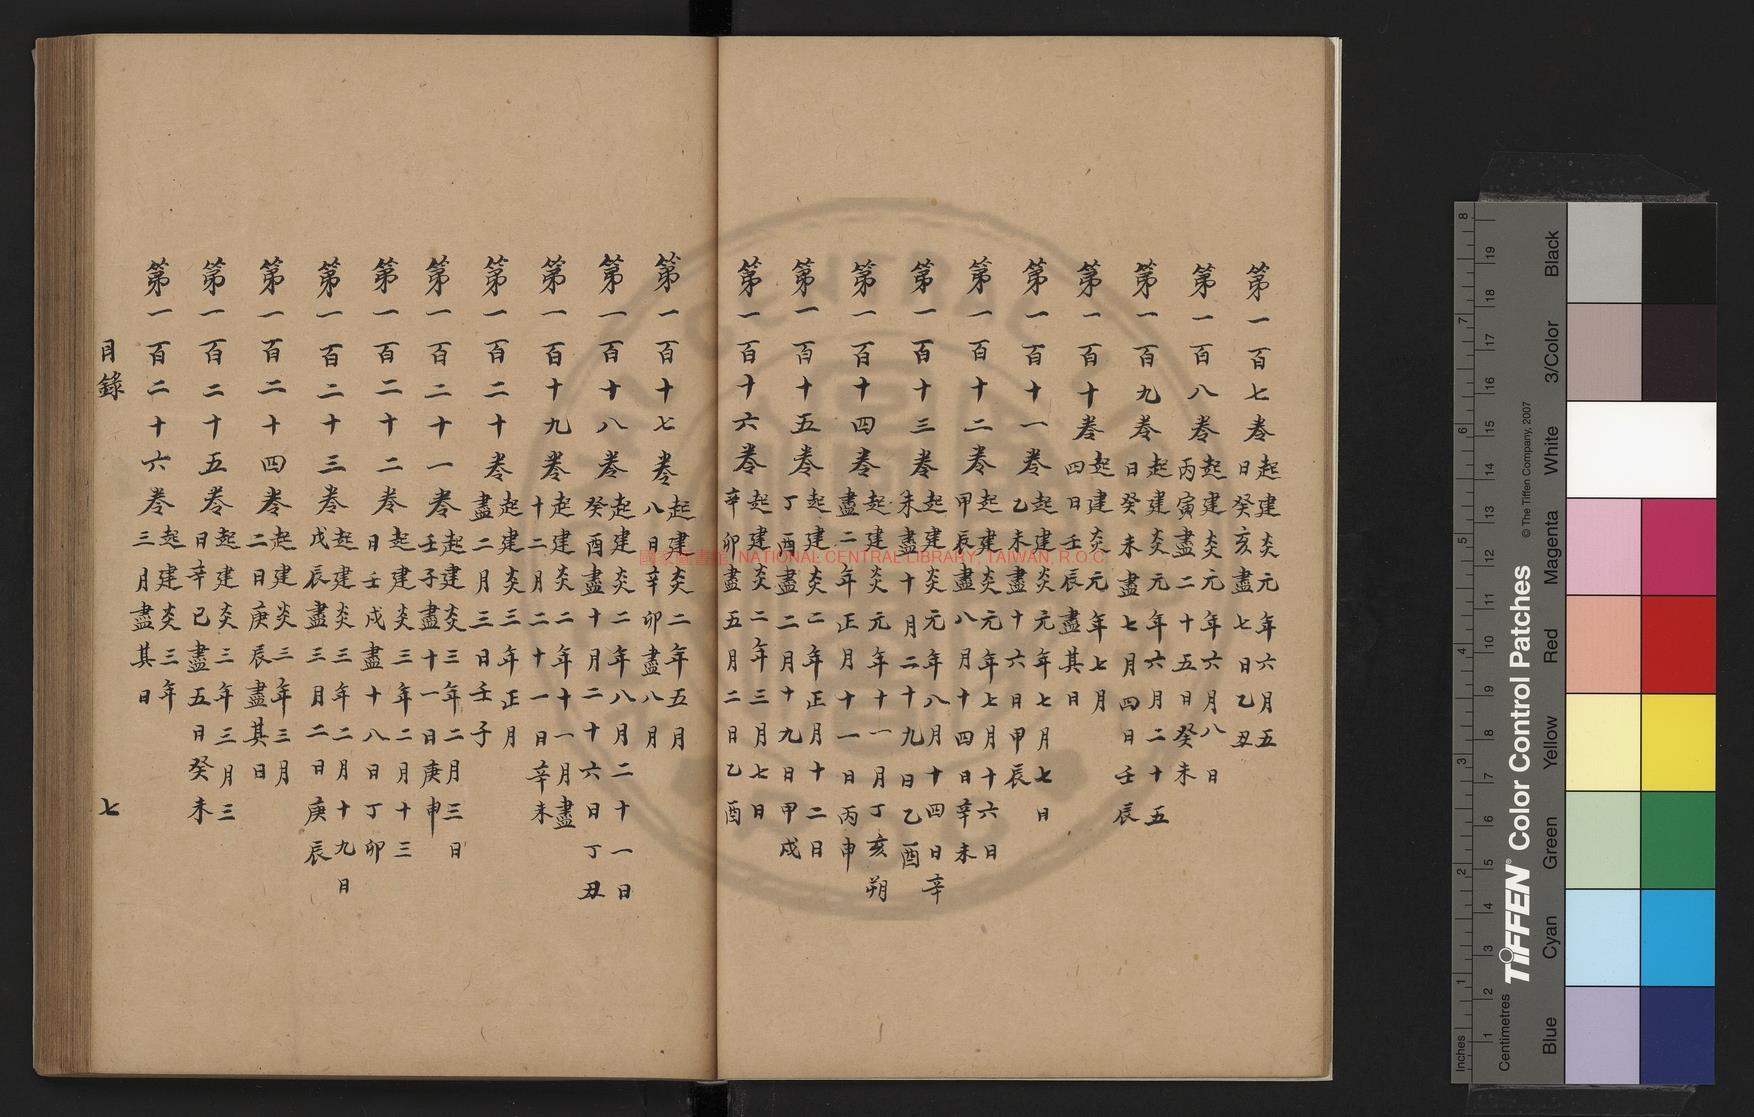 第一百七卷起建炎元年六月五
日癸亥盡七日乙丑
第一百八卷起建炎元年六月八日
丙寅盡二十五日癸未
第一百九卷起建炎元年六月二十五
日癸未盡七月四日壬辰
第一百十卷起建炎元年七月
四日壬辰盡其日
第一百十一卷起建炎元年七月七日
乙未盡十六日甲辰
第一百十二卷起建炎元年七月十六日
甲辰盡八月十四日辛未
第一百十三卷起建炎元年八月十四日辛
未盡十月二十九日乙酉
第一百十四卷起建炎元年十一月丁亥朔
盡二年正月十一日丙申
第一百十五卷起建炎二年正月十二日
丁酉盡二月十九日甲戌
第一百十六卷起建炎二年三月七日
辛卯盡五月二日乙酉
第一百十七卷起建炎二年五月
八日辛卯盡八月
第一百十八卷起建炎二年八月二十一日
癸酉盡十月二十六日丁丑
第一百十九卷起建炎二年十一月盡
十二月二十一日辛未
第一百二十卷起建炎三年正月
盡二月三日壬子
第一百二十一卷起建炎三年二月三日
壬子盡十一日庚申
第一百二十二卷起建炎三年二月十三
日壬戌盡十八日丁卯
第一百二十三卷起建炎三年二月十九日
戊辰盡三月二日庚辰
第一百二十四卷起建炎三年三月
二日庚辰盡其日
第一百二十五卷起建炎三年三月三
日辛巳盡五日癸未
第一百二十六卷起建炎三年
三月盡其日
目錄 七
國家圖書館 NATIONAL CENTRAL LIBRARY, TAIWAN, R.O.C
Inches
Centimetres
TIFFEN® Color Control Patches
© The Tiffen Company, 2007
Blue Cyan Green Yellow Red Magenta White 3/Color Black